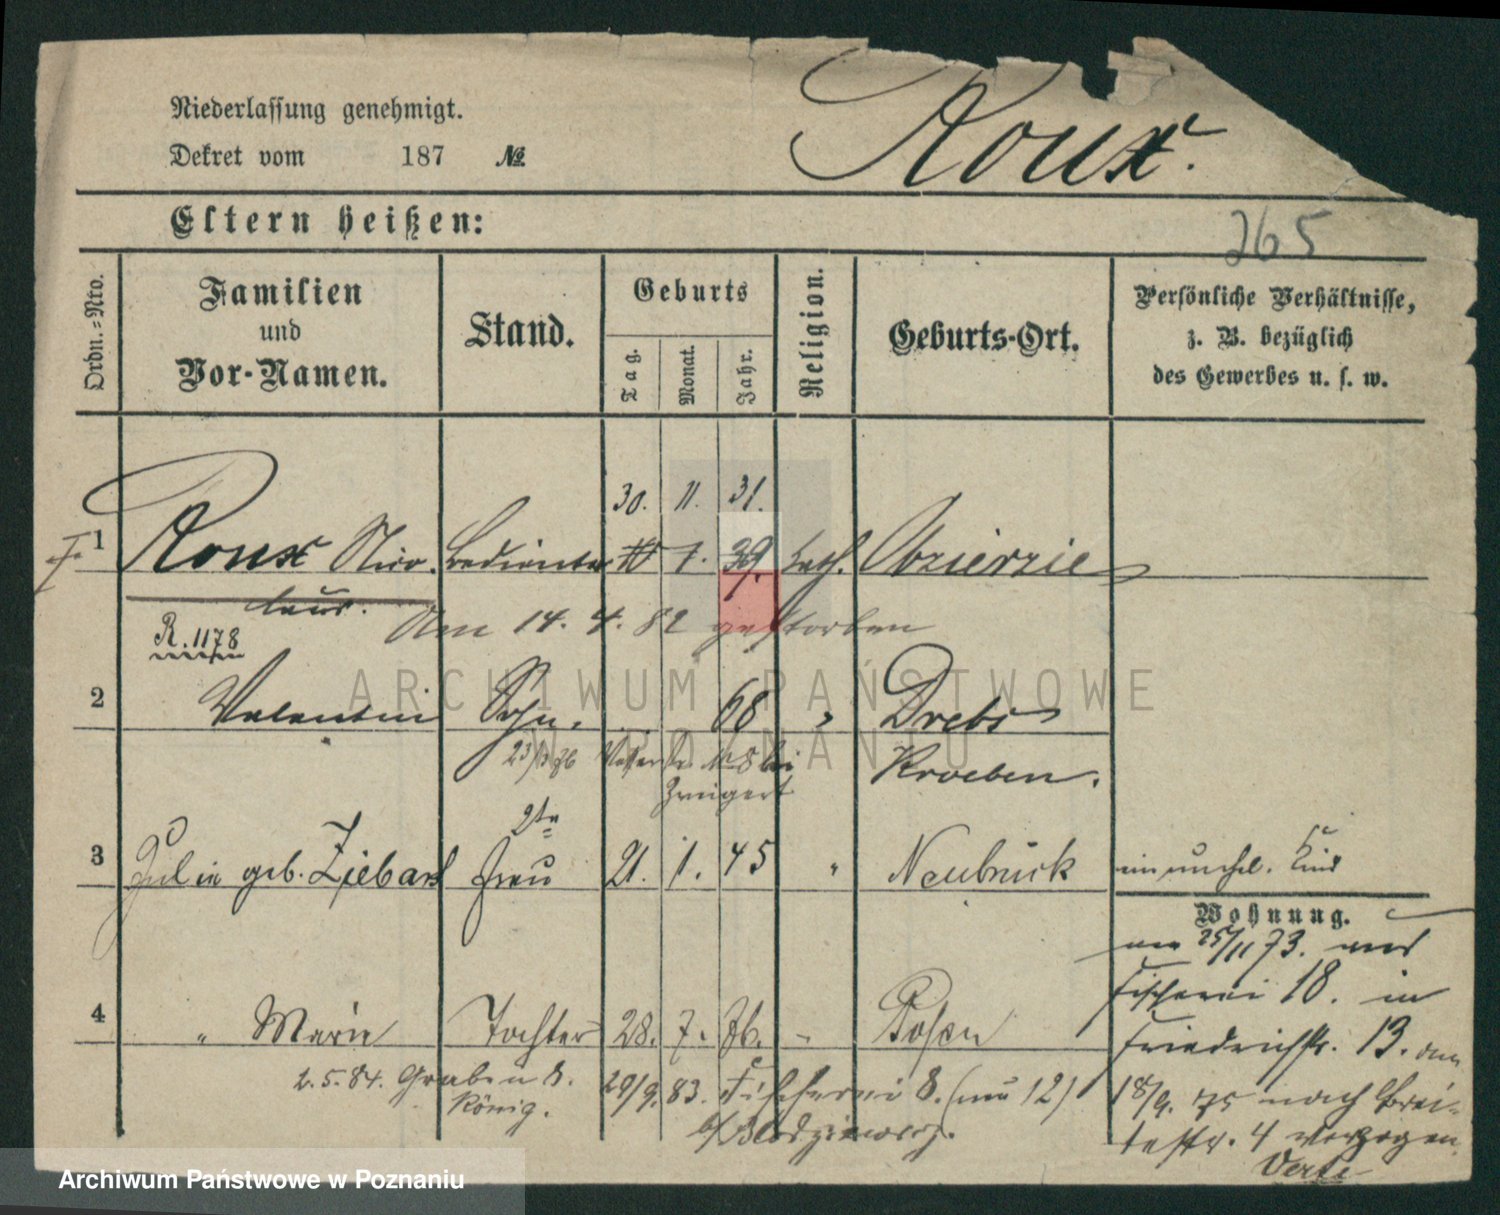 Niederlassung genehmigt.
Dekret vom 187 №
Roux.
Eltern heißen:
265
Ordn.-Nro.
Familien
und
Vor-Namen.
Stand.
Geburts
Tag.
Monat.
Jahr.
Religion.
Geburts-Ort.
Persönliche Verhältnisse,
z. B. bezüglich
des Gewerbes u. s. w.
30. 11. 31.
1 Roux Nico- Bedienter 1. 39. kath. Obzierzie
laus.
Am 14. 4. 82 gestorben
R. 1178
2 Valentin Sohn. 68 " Drebs
Kroeben.
ARCHIWUM PAŃSTWOWE
W POZNANIU
23/3 76 No 8 bei
Zweigert
2te
3 Julie geb. Ziebarth Frau 21. 1. 45 " Neubrück ein unehel. Kind
Wohnung.
am 25/11 73. von
Fischerei 18. in
4 " Marie Tochter 28. 7. 76. " Posen
Friedrichstr. 13. am
2. 5. 84. Graben 8. 29/9. 83. Fischerei 8. (neu 12)
König.
18/9. 75 nach Brei-
testr. 4 verzogen.
Verte
Archiwum Państwowe w Poznaniu